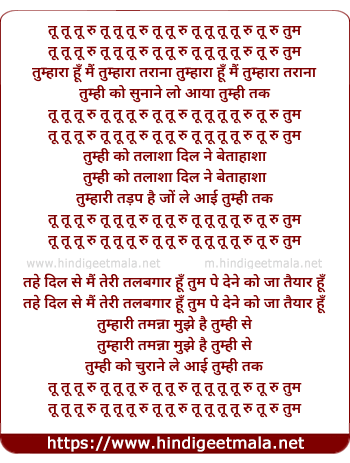 तू तू तू रु तू तू तू रु तू तू रु तू तू तू तू तू रु तू रु तुम
तू तू तू रु तू तू तू रु तू तू रु तू तू तू तू तू रु तू रु तुम
तुम्हारा हूँ मैं तुम्हारा तराना तुम्हारा हूँ मैं तुम्हारा तराना
तुम्ही को सुनाने लो आया तुम्ही तक
तू तू तू रु तू तू तू रु तू तू रु तू तू तू तू तू रु तू रु तुम
तू तू तू रु तू तू तू रु तू तू रु तू तू तू तू तू रु तू रु तुम
तुम्ही को तलाशा दिल ने बेताहाशा
तुम्ही को तलाशा दिल ने बेताहाशा
तुम्हारी तड़प है जों ले आई तुम्ही तक
तू तू तू रु तू तू तू रु तू तू रु तू तू तू तू तू रु तू रु तुम
तू तू तू रु तू तू तू रु तू तू रु तू तू तू तू तू रु तू रु तुम
www.hindigeetmala.net m.hindigeetmala.net
तहे दिल से मैं तेरी तलबगार हूँ तुम पे देने को जा तैयार हूँ
तहे दिल से मैं तेरी तलबगार हूँ तुम पे देने को जा तैयार हूँ
तुम्हारी तमन्ना मुझे है तुम्ही से
तुम्हारी तमन्ना मुझे है तुम्ही से
तुम्ही को चुराने ले आई तुम्ही तक
तू तू तू रु तू तू तू रु तू तू रु तू तू तू तू तू रु तू रु तुम
तू तू तू रु तू तू तू रु तू तू रु तू तू तू तू तू रु तू रु तुम
https://www.hindigeetmala.net